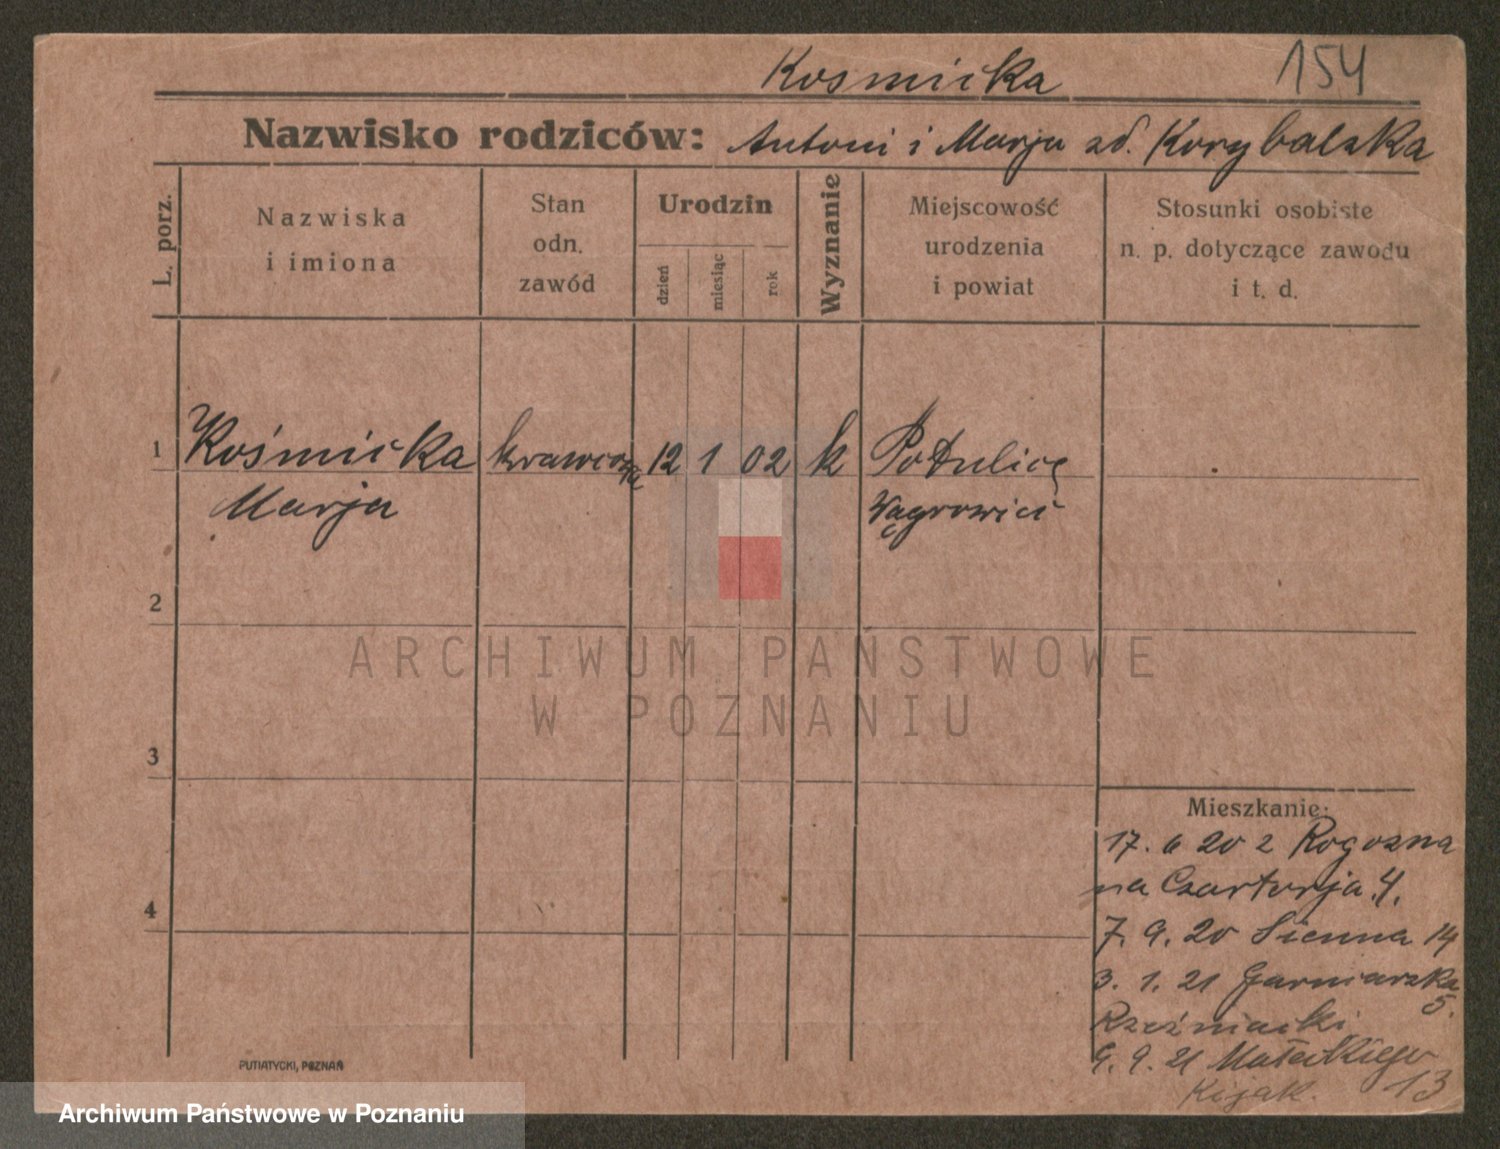 Kosmicka 154
Nazwisko rodziców: Antoni i Marja zd. Korybalska
L. porz.
Nazwiska
i imiona
Stan
odn.
zawód
Urodzin
dzień
miesiąc
rok
Wyznanie
Miejscowość
urodzenia
i powiat
Stosunki osobiste
n. p. dotyczące zawodu
i t. d.
1 Kośmicka krawcowa 12 1 02 k Potulice
Marja Wągrowiec
2
ARCHIWUM PAŃSTWOWE
W POZNANIU
3
Mieszkanie:
17. 6 20 z Rogozna
na Czartorja 4.
4
7. 9. 20 Sienna 14
3. 1. 21 Garncarska
5.
Rzeźniacki
9. 9. 21 Małeckiego
13
Kijak.
PUTIATYCKI, POZNAŃ
Archiwum Państwowe w Poznaniu